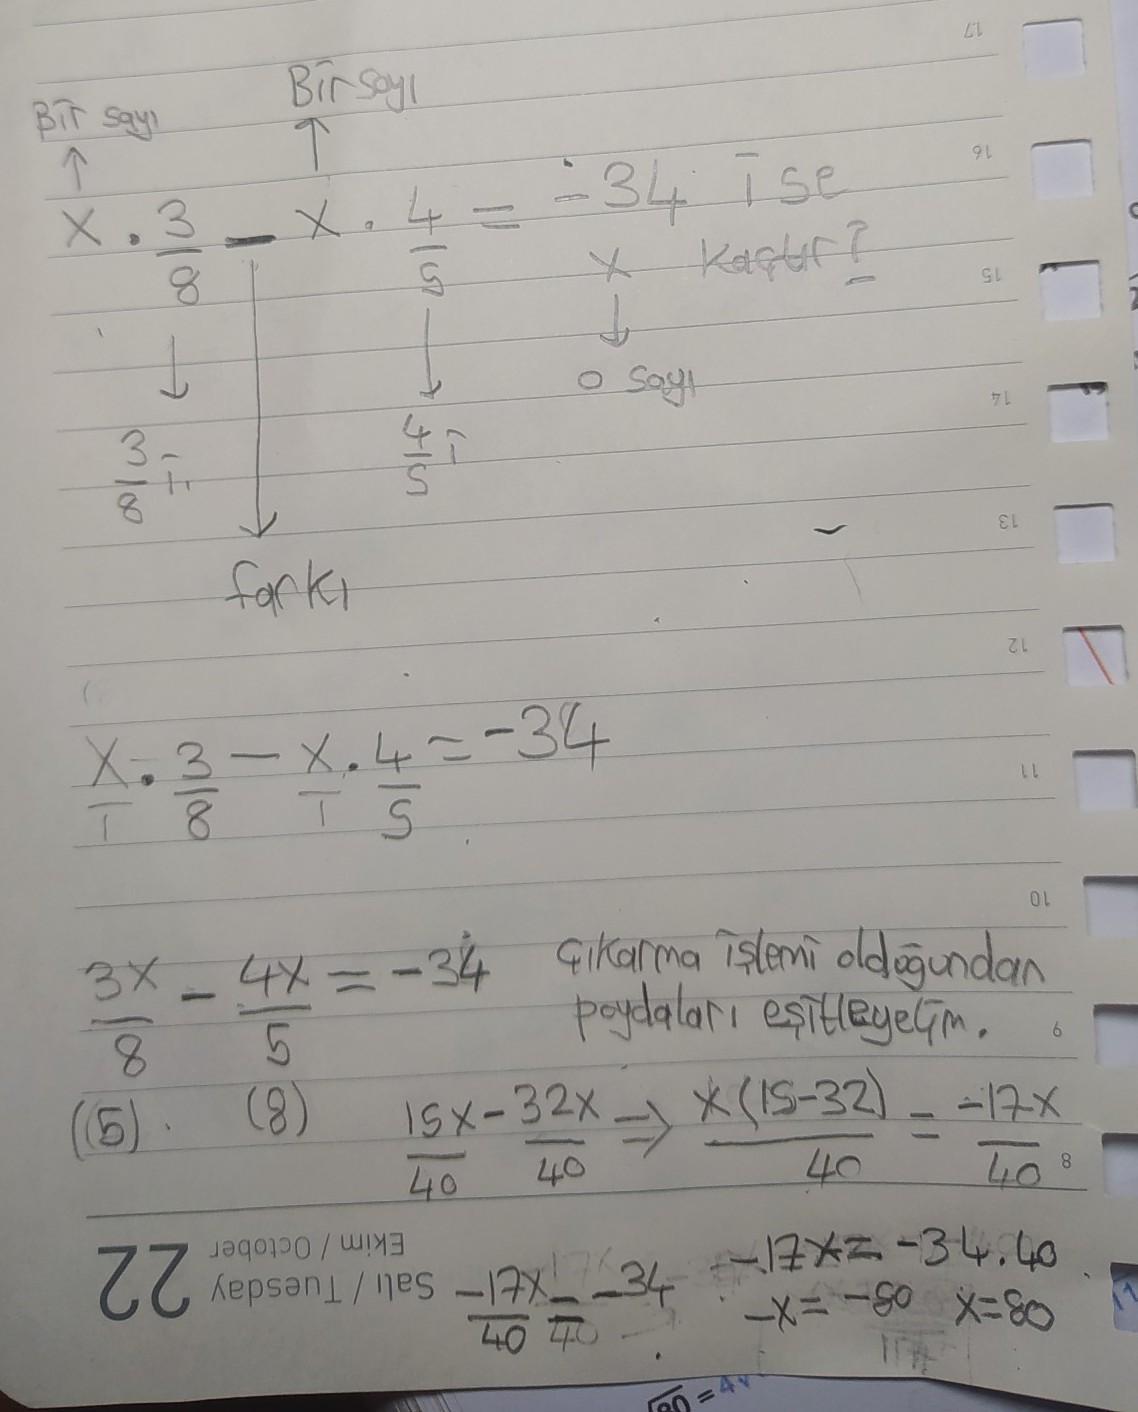 Bir sayı Bir sayı
x . 3/8 - x . 4/5 = -34 ise
x kaçtır?
o sayı
3/8 i 4/5 i
farkı
x/1 . 3/8 - x/1 . 4/5 = -34
3x/8 - 4x/5 = -34 Çıkarma işlemi olduğundan
paydaları eşitleyelim.
(5) (8) 15x/40 - 32x/40 => x(15-32)/40 = -17x/40
-17x/40 = -34 -17x = -34.40
-x = -80 x=80
22 Salı / Tuesday
Ekim / October
8
9
10
11
12
13
14
15
16
17